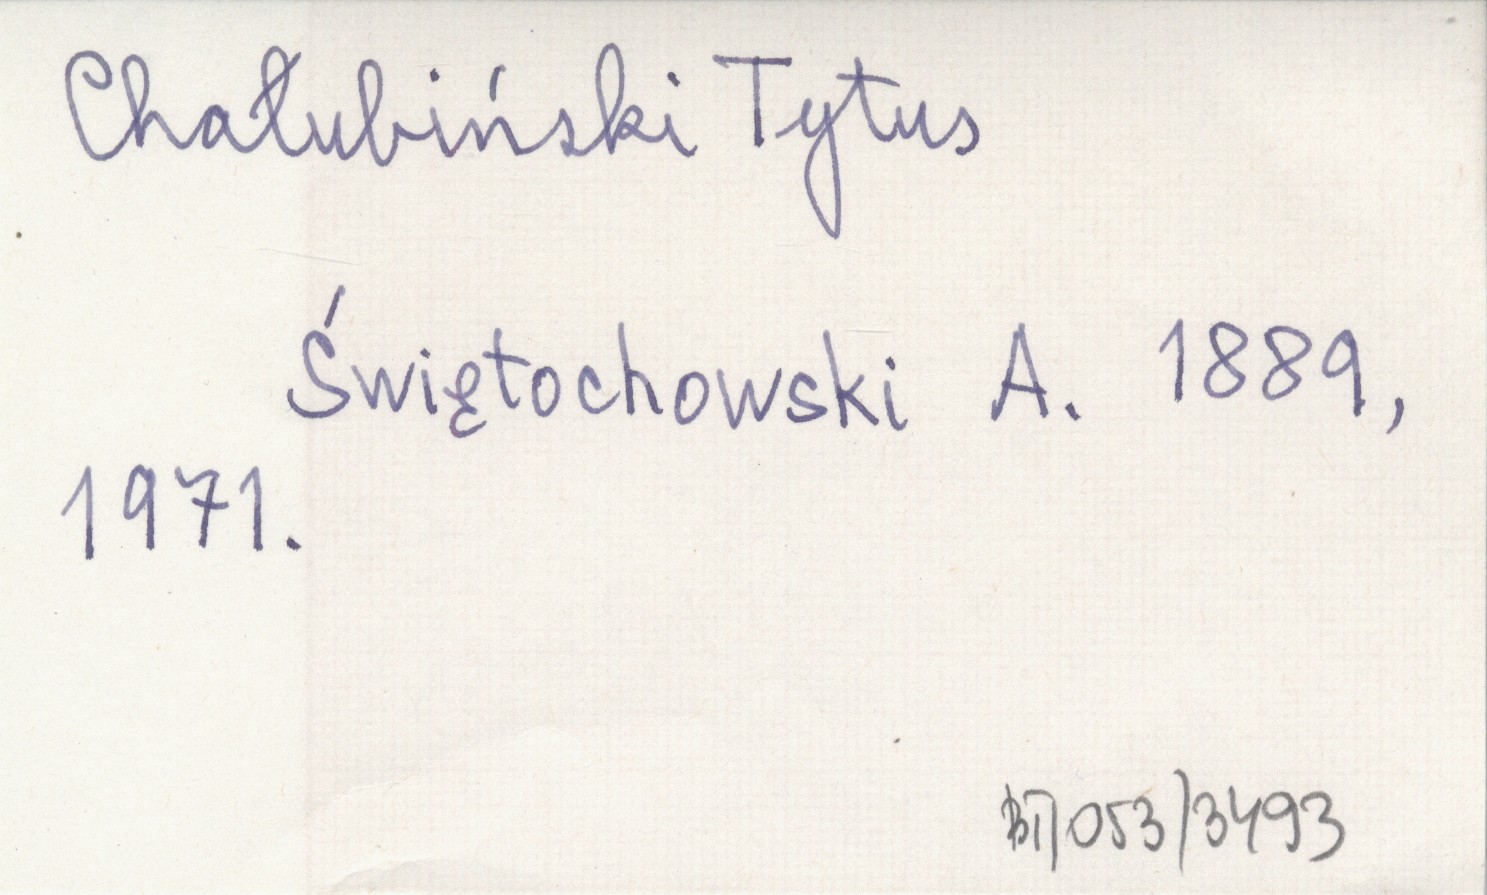 Chałubiński Tytus
Świętochowski A. 1889,
1971.
BT/053/3493